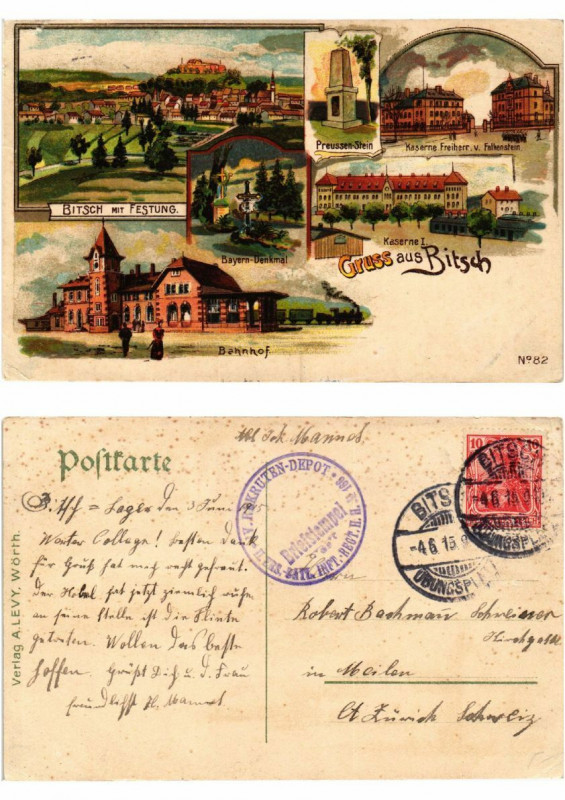 Preussen-Stein
Kaserne Freiherr. v. Falkenstein
BITSCH MIT FESTUNG.
Bayern-Denkmal
Kaserne I.
Gruss aus Bitsch
Bahnhof.
No 82
Postkarte
REKRUTEN-DEPOT
Briefstempel
BATL. INFT. REGT.
10
10
BITSCH
-4.6.15.9
ÜBUNGSPLATZ
BITSCH
-4.6.15
ÜBUNGSPLATZ
Verlag A. LEVY, Wörth.
Bitsch-Lager den 3 Juni
Werter Collega! besten Dank
für Gruß hat mich recht gefreut.
Der Hobel hat jetzt ziemlich ruhe
an seine Stelle ist die Flinte
getreten. Wollen das beste
hoffen. Grüßt Dich u. d. Frau
freundlichst
Robert Bachman Schreiner
Kirchgasse
in Meilen
Ct Zürich Schweiz